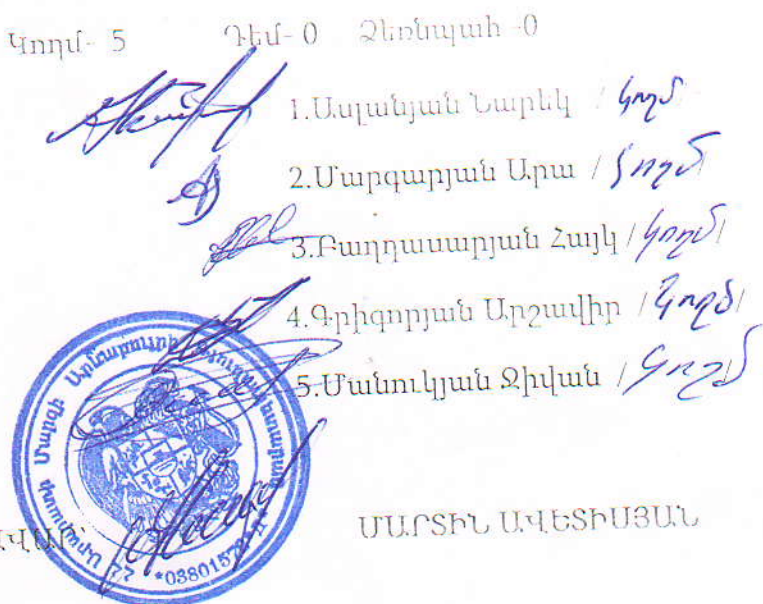 Կողմ- 5 Դեմ- 0 Ձեռնպահ -0
1.Ասլանյան Նարեկ / կողմ
2.Մարգարյան Արա / կողմ/
3.Բաղդասարյան Հայկ / կողմ/
4.Գրիգորյան Արշավիր / կողմ/
5.Մանուկյան Ջիվան / կողմ
ՄԱՐՏԻՆ ԱՎԵՏԻՍՅԱՆ